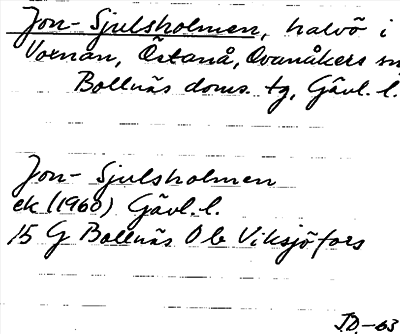 Jon-Sjulsholmen, halvö i
Voxnan, Östanå, Ovanåkers sn
Bollnäs doms. tg, Gävl. l.
Jon-Sjulsholmen
ek (1960) Gävl. l.
15 G Bollnäs 0 b Viksjöfors
J.D.-63